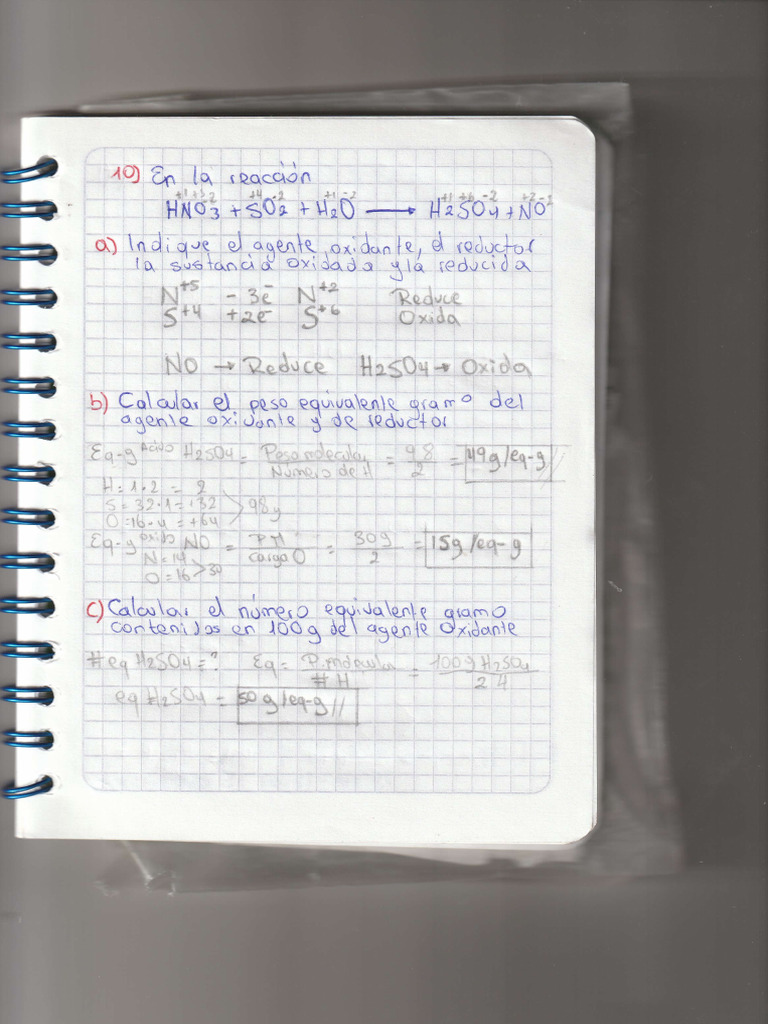 10) En la reacción
+1 +5 -2 +4 -2 +1 -2 +1 +6 -2 +2 -2
HNO3 + SO2 + H2O → H2SO4 + NO
a) Indique el agente oxidante, el reductor
la sustancia oxidada y la reducida
N+5 - 3e- N+2 Reduce
S+4 +2e- S+6 Oxida
NO → Reduce H2SO4 → Oxida
b) Calcular el peso equivalente gramo del
agente oxidante y de reductor
Eq-g Acido H2SO4 = Peso molecular / Número de H = 98 / 2 = 49g/eq-g //
H = 1·2 = 2
S = 32·1 = +32 > 98g
O = 16·4 = +64
Eq-g oxido NO = P.M / carga O = 30g / 2 = 15g/eq-g
N = 14
O = 16 > 30
c) Calcular el número equivalente gramo
contenidos en 100g del agente Oxidante
# eq H2SO4 = ? Eq = P. molecular / # H = 100g H2SO4 / 2
eq H2SO4 = 50g/eq-g //